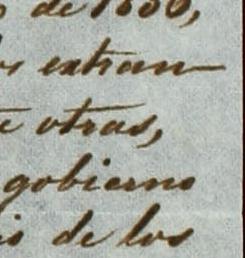 de 1800,
extran
otras,
gobierno
de los